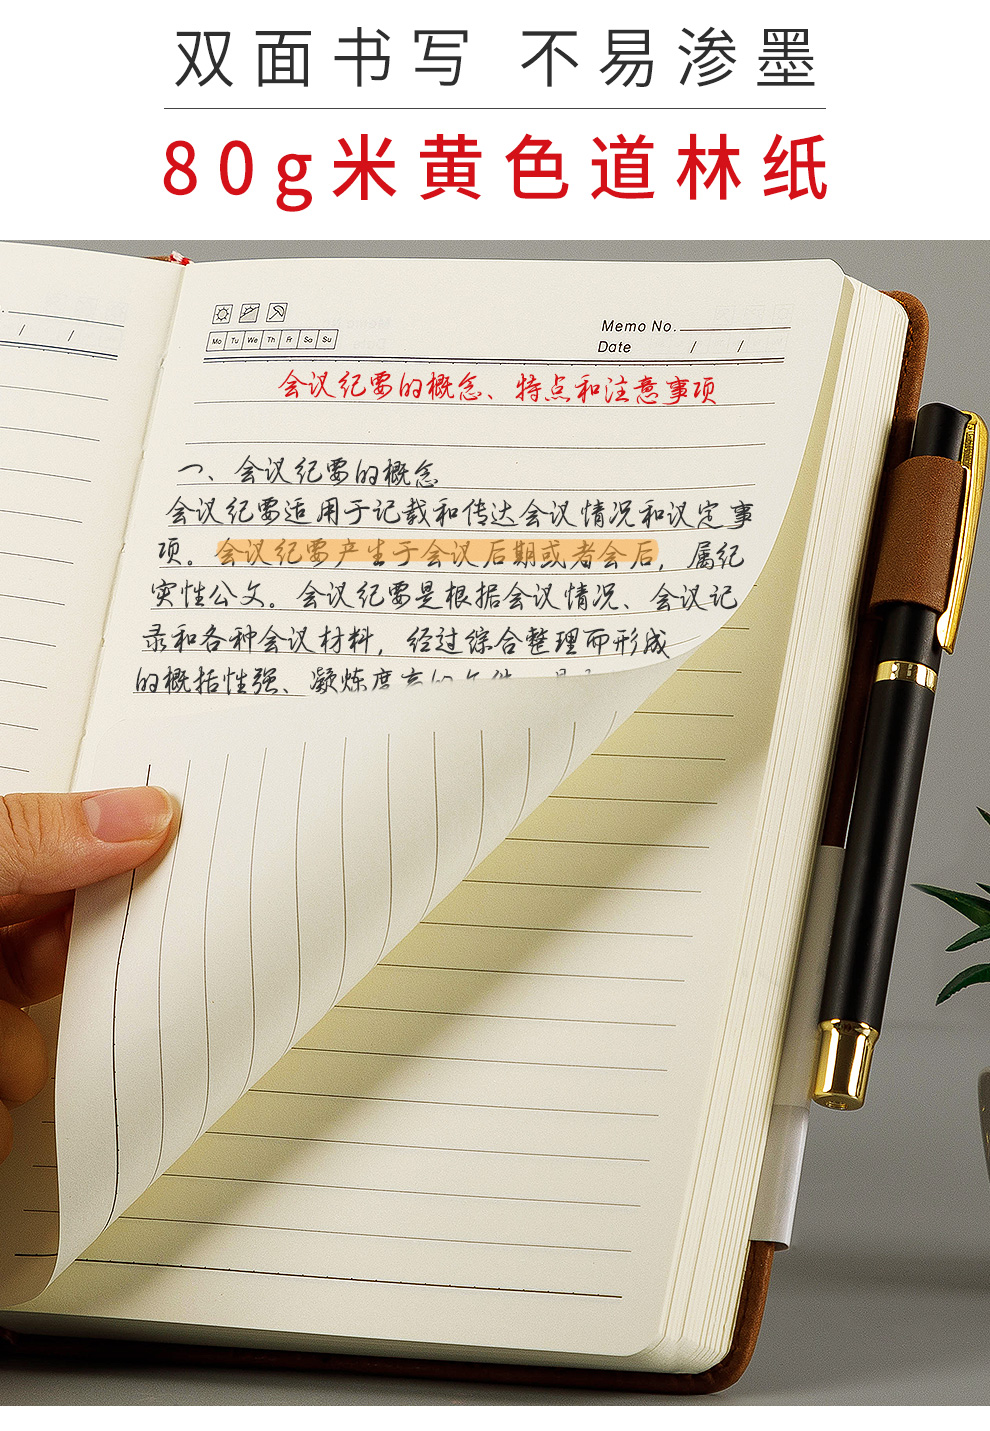 双面书写 不易渗墨
80g米黄色道林纸
Memo No.
Mo Tu We Th Fr Sa Su
Date / /
会议纪要的概念、特点和注意事项
一、会议纪要的概念
会议纪要适用于记载和传达会议情况和议定事
项。会议纪要产生于会议后期或者会后，属纪
实性公文。会议纪要是根据会议情况、会议记
录和各种会议材料，经过综合整理而形成
的概括性强、凝炼度高的文件